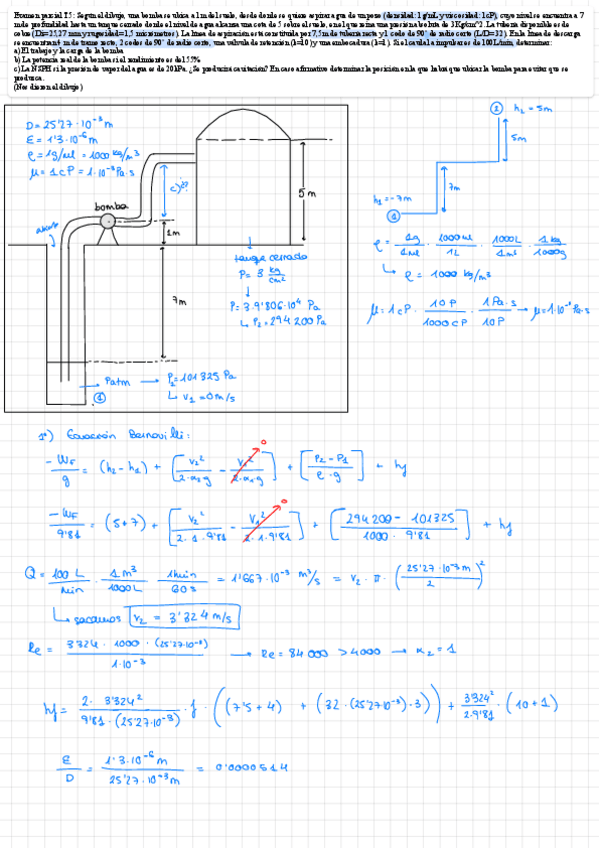 Examen parcial 15: Según el dibujo, una bomba se ubica a 1m del suelo, desde donde se quiere aspirar agua de un pozo (densidad: 1 g/mL y viscosidad: 1cP), cuyo nivel se encuentra a 7
m de profundidad hasta un tanque cerrado donde el nivel de agua alcanza una cota de 5 sobre el suelo, en el que reina una presión absoluta de 3 Kg/cm². La tubería disponible es de
cobre (Di=25,27 mm y rugosidad=1,5 micrómetros). La línea de aspiración está constituida por 7,5m de tubería recta y 1 codo de 90° de radio corto (L/D=32). En la línea de descarga
se encuentran 4 m de tramo recto, 2 codos de 90° de radio corto, una válvula de retención (k=10) y una embocadura (k=1). Si el caudal a impulsar es de 100 L/min, determinar:
a) El trabajo y la carga de la bomba
b) La potencia real de la bomba si el rendimiento es del 55%
c) La NPSH si la presión de vapor del agua es de 20 kPa. ¿Se producirá cavitación? En caso afirmativo determinar la posición en la que habría que ubicar la bomba para evitar que se
produzca.
(Nos dieron el dibujo)
D = 25'27 · 10⁻³ m
ε = 1'3 · 10⁻⁶ m
ρ = 1g/ml = 1000 kg/m³
μ = 1cP = 1·10⁻³ Pa·s
bomba
c) ¿?
5 m
1m
7m
tanque cerrado
P = 3 kg/cm²
P = 3·9'806·10⁴ Pa
↳ P₂ = 294 200 Pa
Patm → P₂ = 101 325 Pa
↳ v₁ = 0 m/s
①
② h₂ = 5m
5m
7m
h₁ = -7m
①
ρ = 1g/1ml · 1000ml/1L · 1000L/1m³ · 1kg/1000g
↳ ρ = 1000 kg/m³
μ = 1cP · 10P/1000cP · 1Pa·s/10P → μ = 1·10⁻³ Pa·s
1º) Ecuación Bernoulli:
-WF/g = (h₂ - h₁) + [v₂²/2·α₂g - v₁²/2·α₁g] + [P₂ - P₁/ρ·g] + hf
0
-WF/9'81 = (5+7) + [v₂²/2·1·9'81 - v₁²/2·1·9'81] + [294200 - 101325/1000·9'81] + hf
0
Q = 100L/min · 1m³/1000L · 1min/60s = 1'667·10⁻³ m³/s = v₂·π·(25'27·10⁻³m/2)²
↳ sacamos v₂ = 3'324 m/s
Re = 3'324 · 1000 · (25'27·10⁻³)/1·10⁻³ → Re = 84 000 > 4000 → α₂ = 1
hf = 2·3'324²/9'81·(25'27·10⁻³) · f · ((7'5 + 4) + (32·(25'27·10⁻³)·3)) + 3'324²/2·9'81 · (10+1)
ε/D = 1'3·10⁻⁶ m/25'27·10⁻³ m = 0'0000514